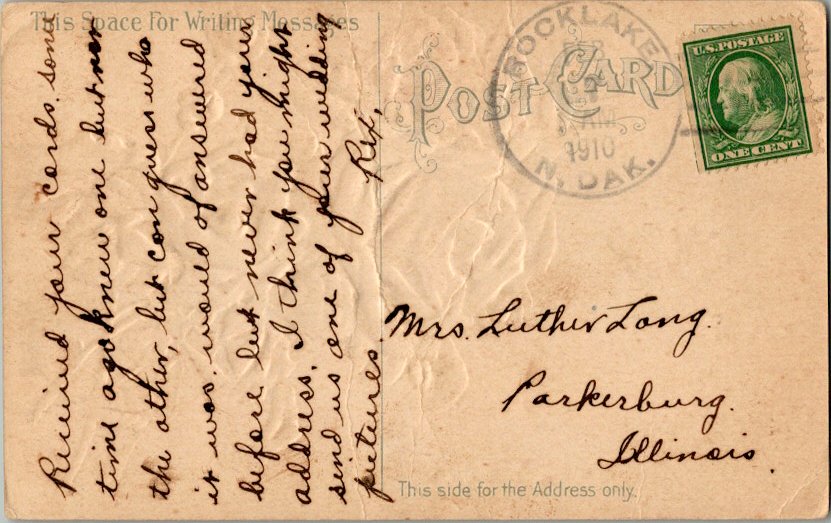 This Space For Writing Messages
Received your cards some
time ago knew one but not
the other, but can guess who
it was. would of answered
before but never had your
address. I think you might
send us one of your wedding
pictures. Rex.
POST CARD
ROCKLAKE
AM
1910
N. DAK.
U.S. POSTAGE
ONE CENT
Mrs. Luther Long.
Parkerburg.
Illinois.
This side for the Address only.